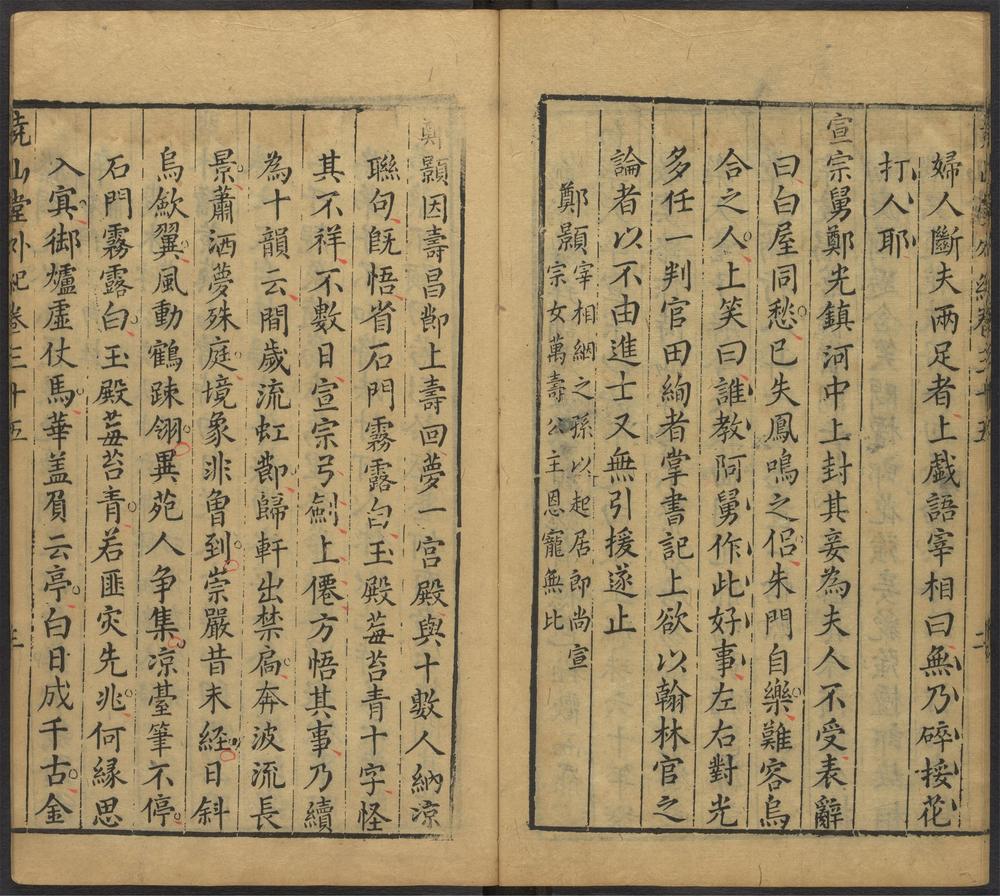 婦人斷夫兩足者上戲語宰相曰無乃碎挼花
打人耶
宣宗舅鄭光鎮河中上封其妾為夫人不受表辭
曰白屋同愁已失鳳鳴之侶朱門自樂難容烏
合之人上笑曰誰教阿舅作此好事左右對光
多任一判官田絢者掌書記上欲以翰林官之
論者以不由進士又無引援遂止
鄭顥宰相絪之孫以起居郎尚宣
宗女萬壽公主恩寵無比
鄭顥因壽昌節上壽回夢一宮殿與十數人納凉
聯句旣悟省石門霧露白玉殿莓苔青十字怪
其不祥不數日宣宗弓劍上僊方悟其事乃續
為十韻云間歲流虹節歸軒出禁扃奔波流長
景蕭洒夢殊庭境象非曾到崇嚴昔未經日斜
烏歛翼風動鶴踈翎異苑人爭集凉臺筆不停
石門霧露白玉殿莓苔青若匪灾先兆何緣思
入㝠御爐虛仗馬華盖負云亭白日成千古金
堯山堂外紀卷三十五
三